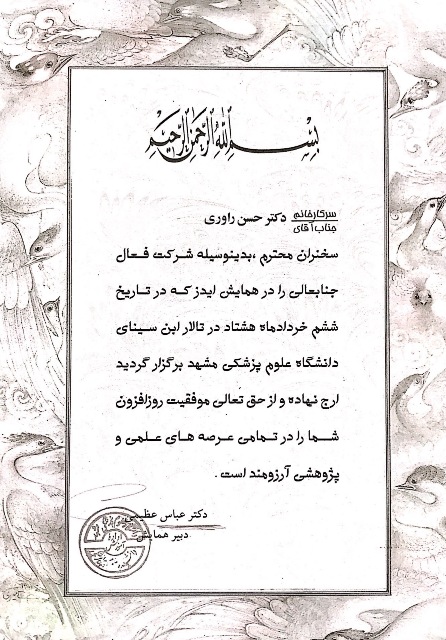 بسم الله الرحمن الرحیم
سرکار خانم
جناب آقای
دکتر حسن راوری
سخنران محترم ،بدینوسیله شرکت فعال
جنابعالی را در همایش ایدز که در تاریخ
ششم خردادماه هشتاد در تالار ابن سینای
دانشگاه علوم پزشکی مشهد برگزار گردید
ارج نهاده و از حق تعالی موفقیت روزافزون
شما را در تمامی عرصه های علمی و
پژوهشی آرزومند است .
دکتر عباس عظیمی
دبیر همایش